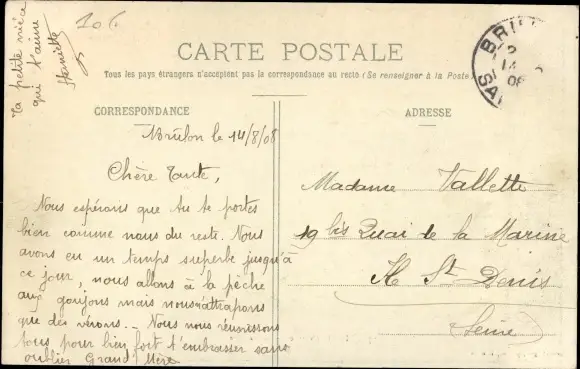 106
Ta petite nièce
qui t'aime
Henriette
CARTE POSTALE
Tous les pays étrangers n'acceptent pas la correspondance au recto (Se renseigner à la Poste)
CORRESPONDANCE
Brûlon le 14/8/08
Chère Tante,
Nous espérons que tu te portes
bien comme nous du reste. Nous
avons eu un temps superbe jusqu'à
ce jour, nous allons à la pêche
aux goujons mais nous n'attrapons
que des vérons.. Nous nous réunissons
tous pour bien fort t'embrasser sans
oublier Grand'Mère
ADRESSE
Madame Vallette
19 bis Quai de la Marine
Ile St Denis
Seine
BRU
14
08
SA